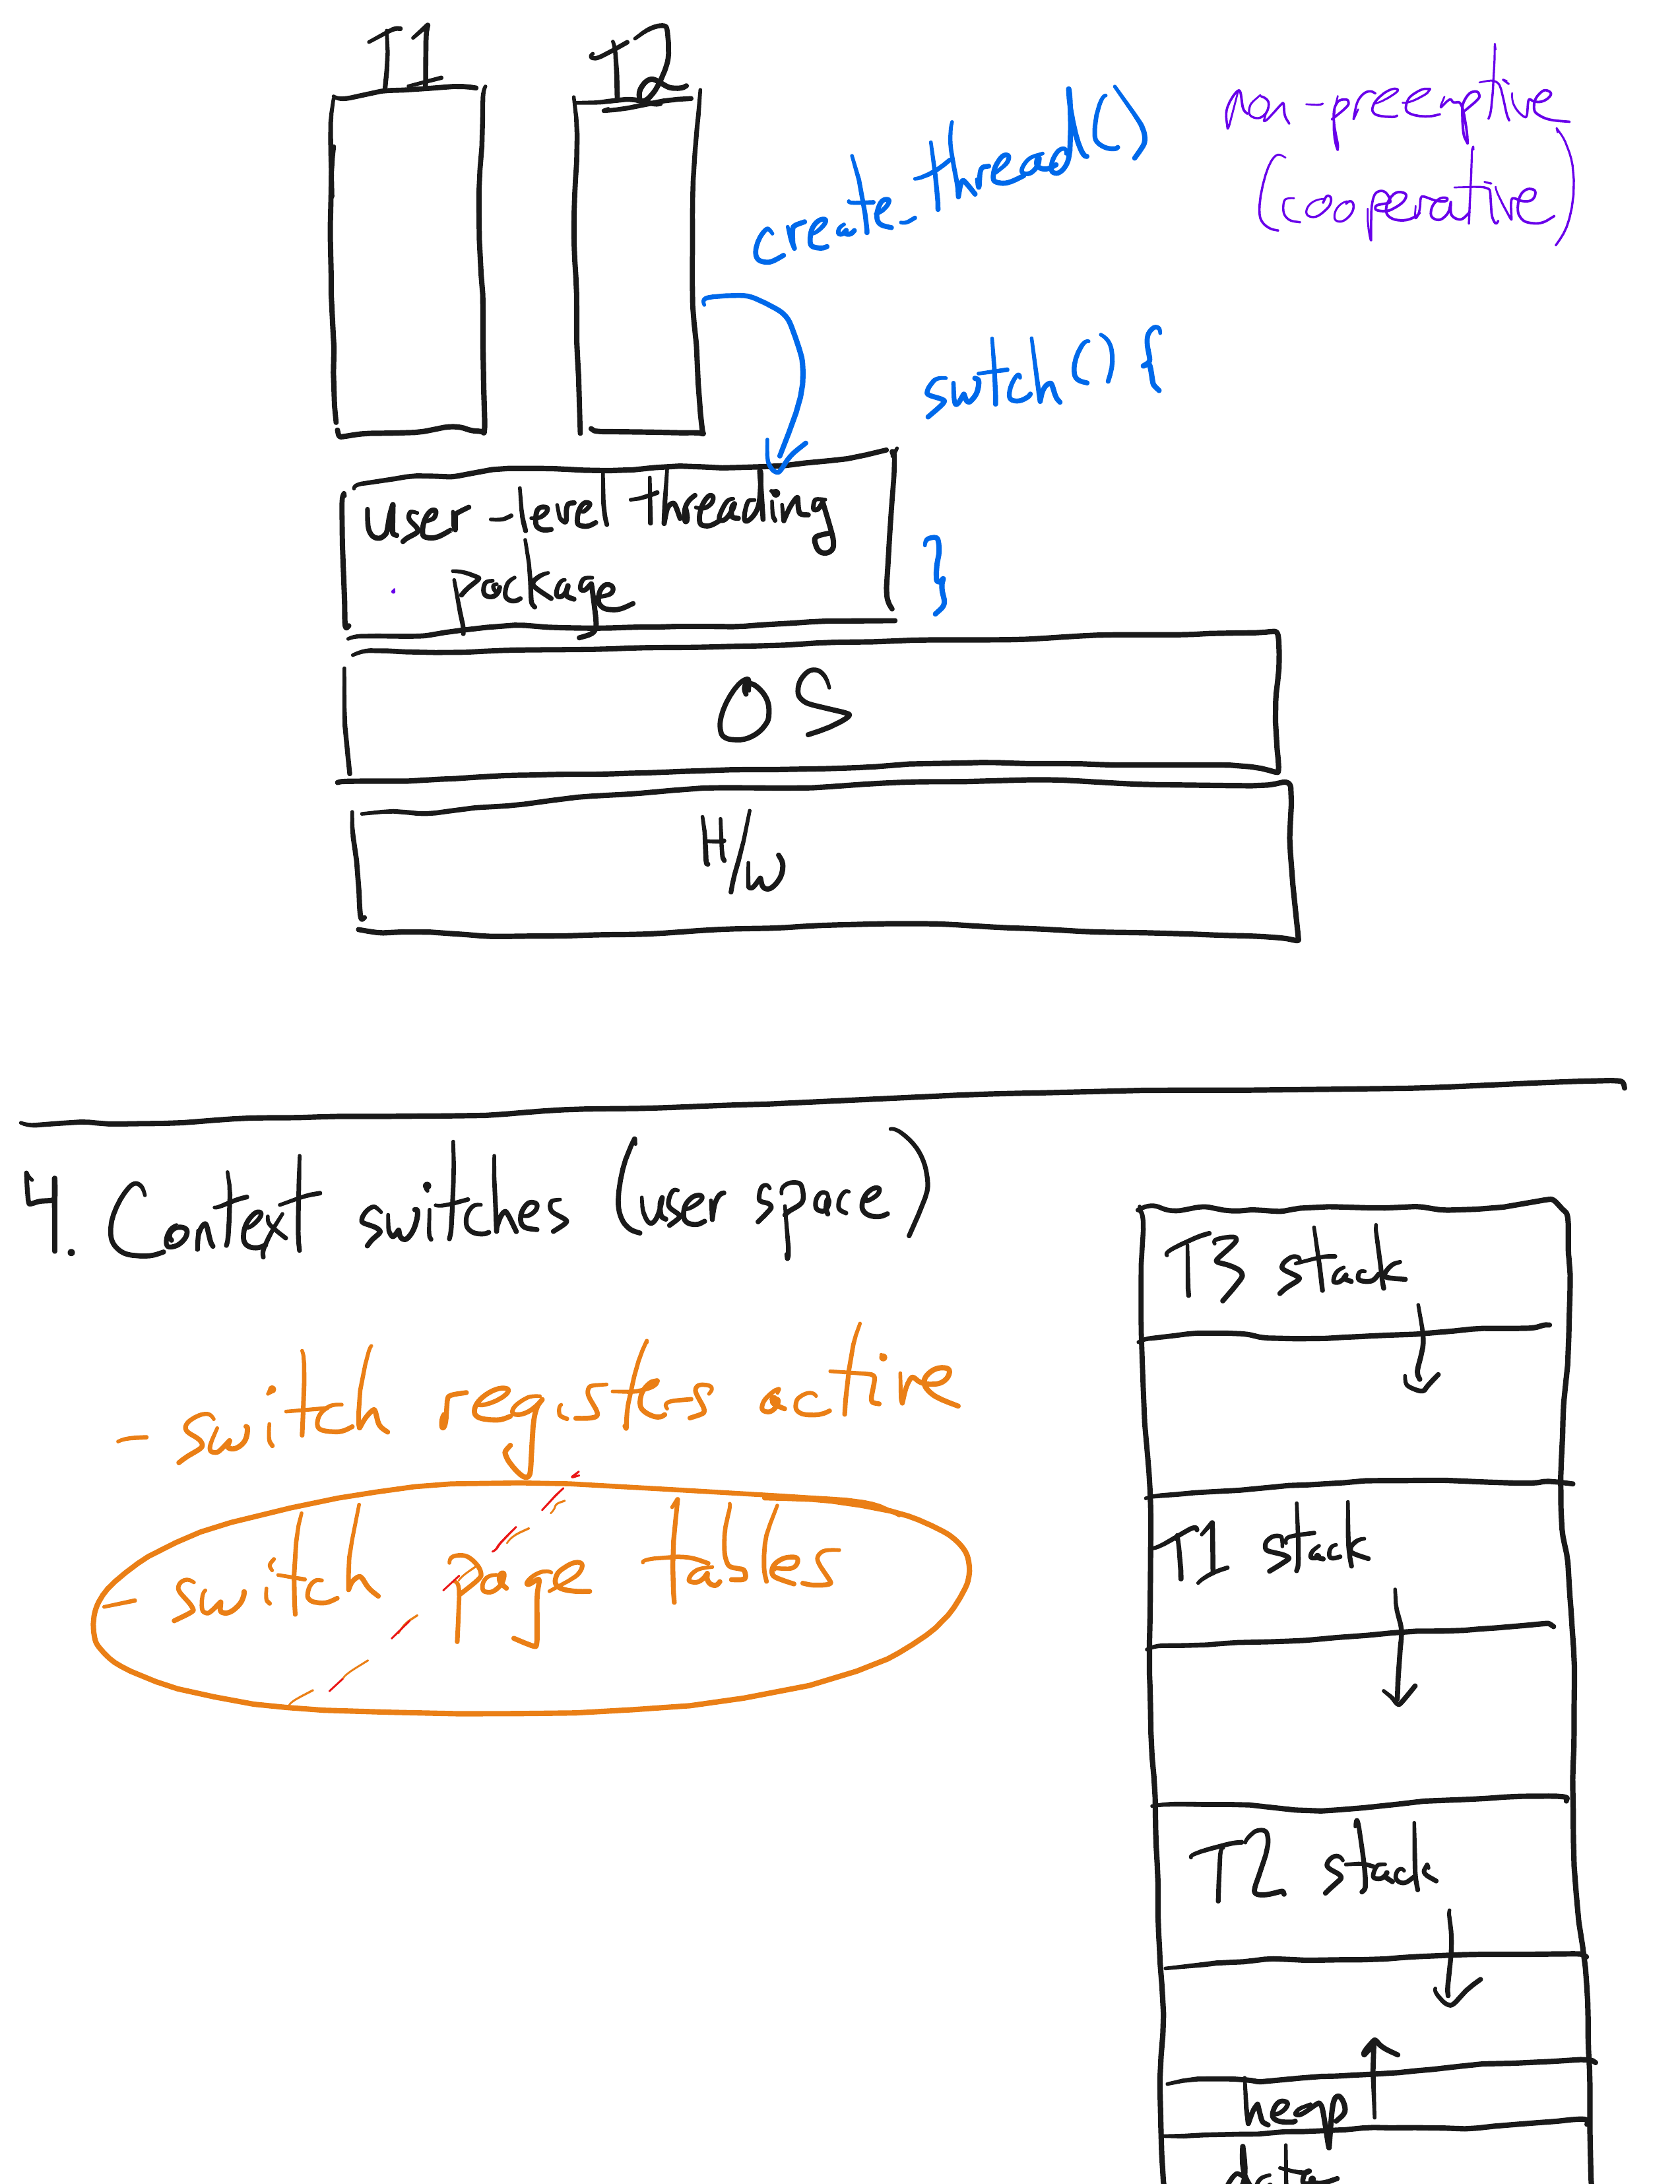 T1
T2
create_thread()
non-preemptive
(cooperative)
swtch() {
user-level threading
package
}
OS
H/W
4. Context switches (user space)
- switch registers active
- switch page tables
T3 stack
T1 stack
T2 stack
heap
data